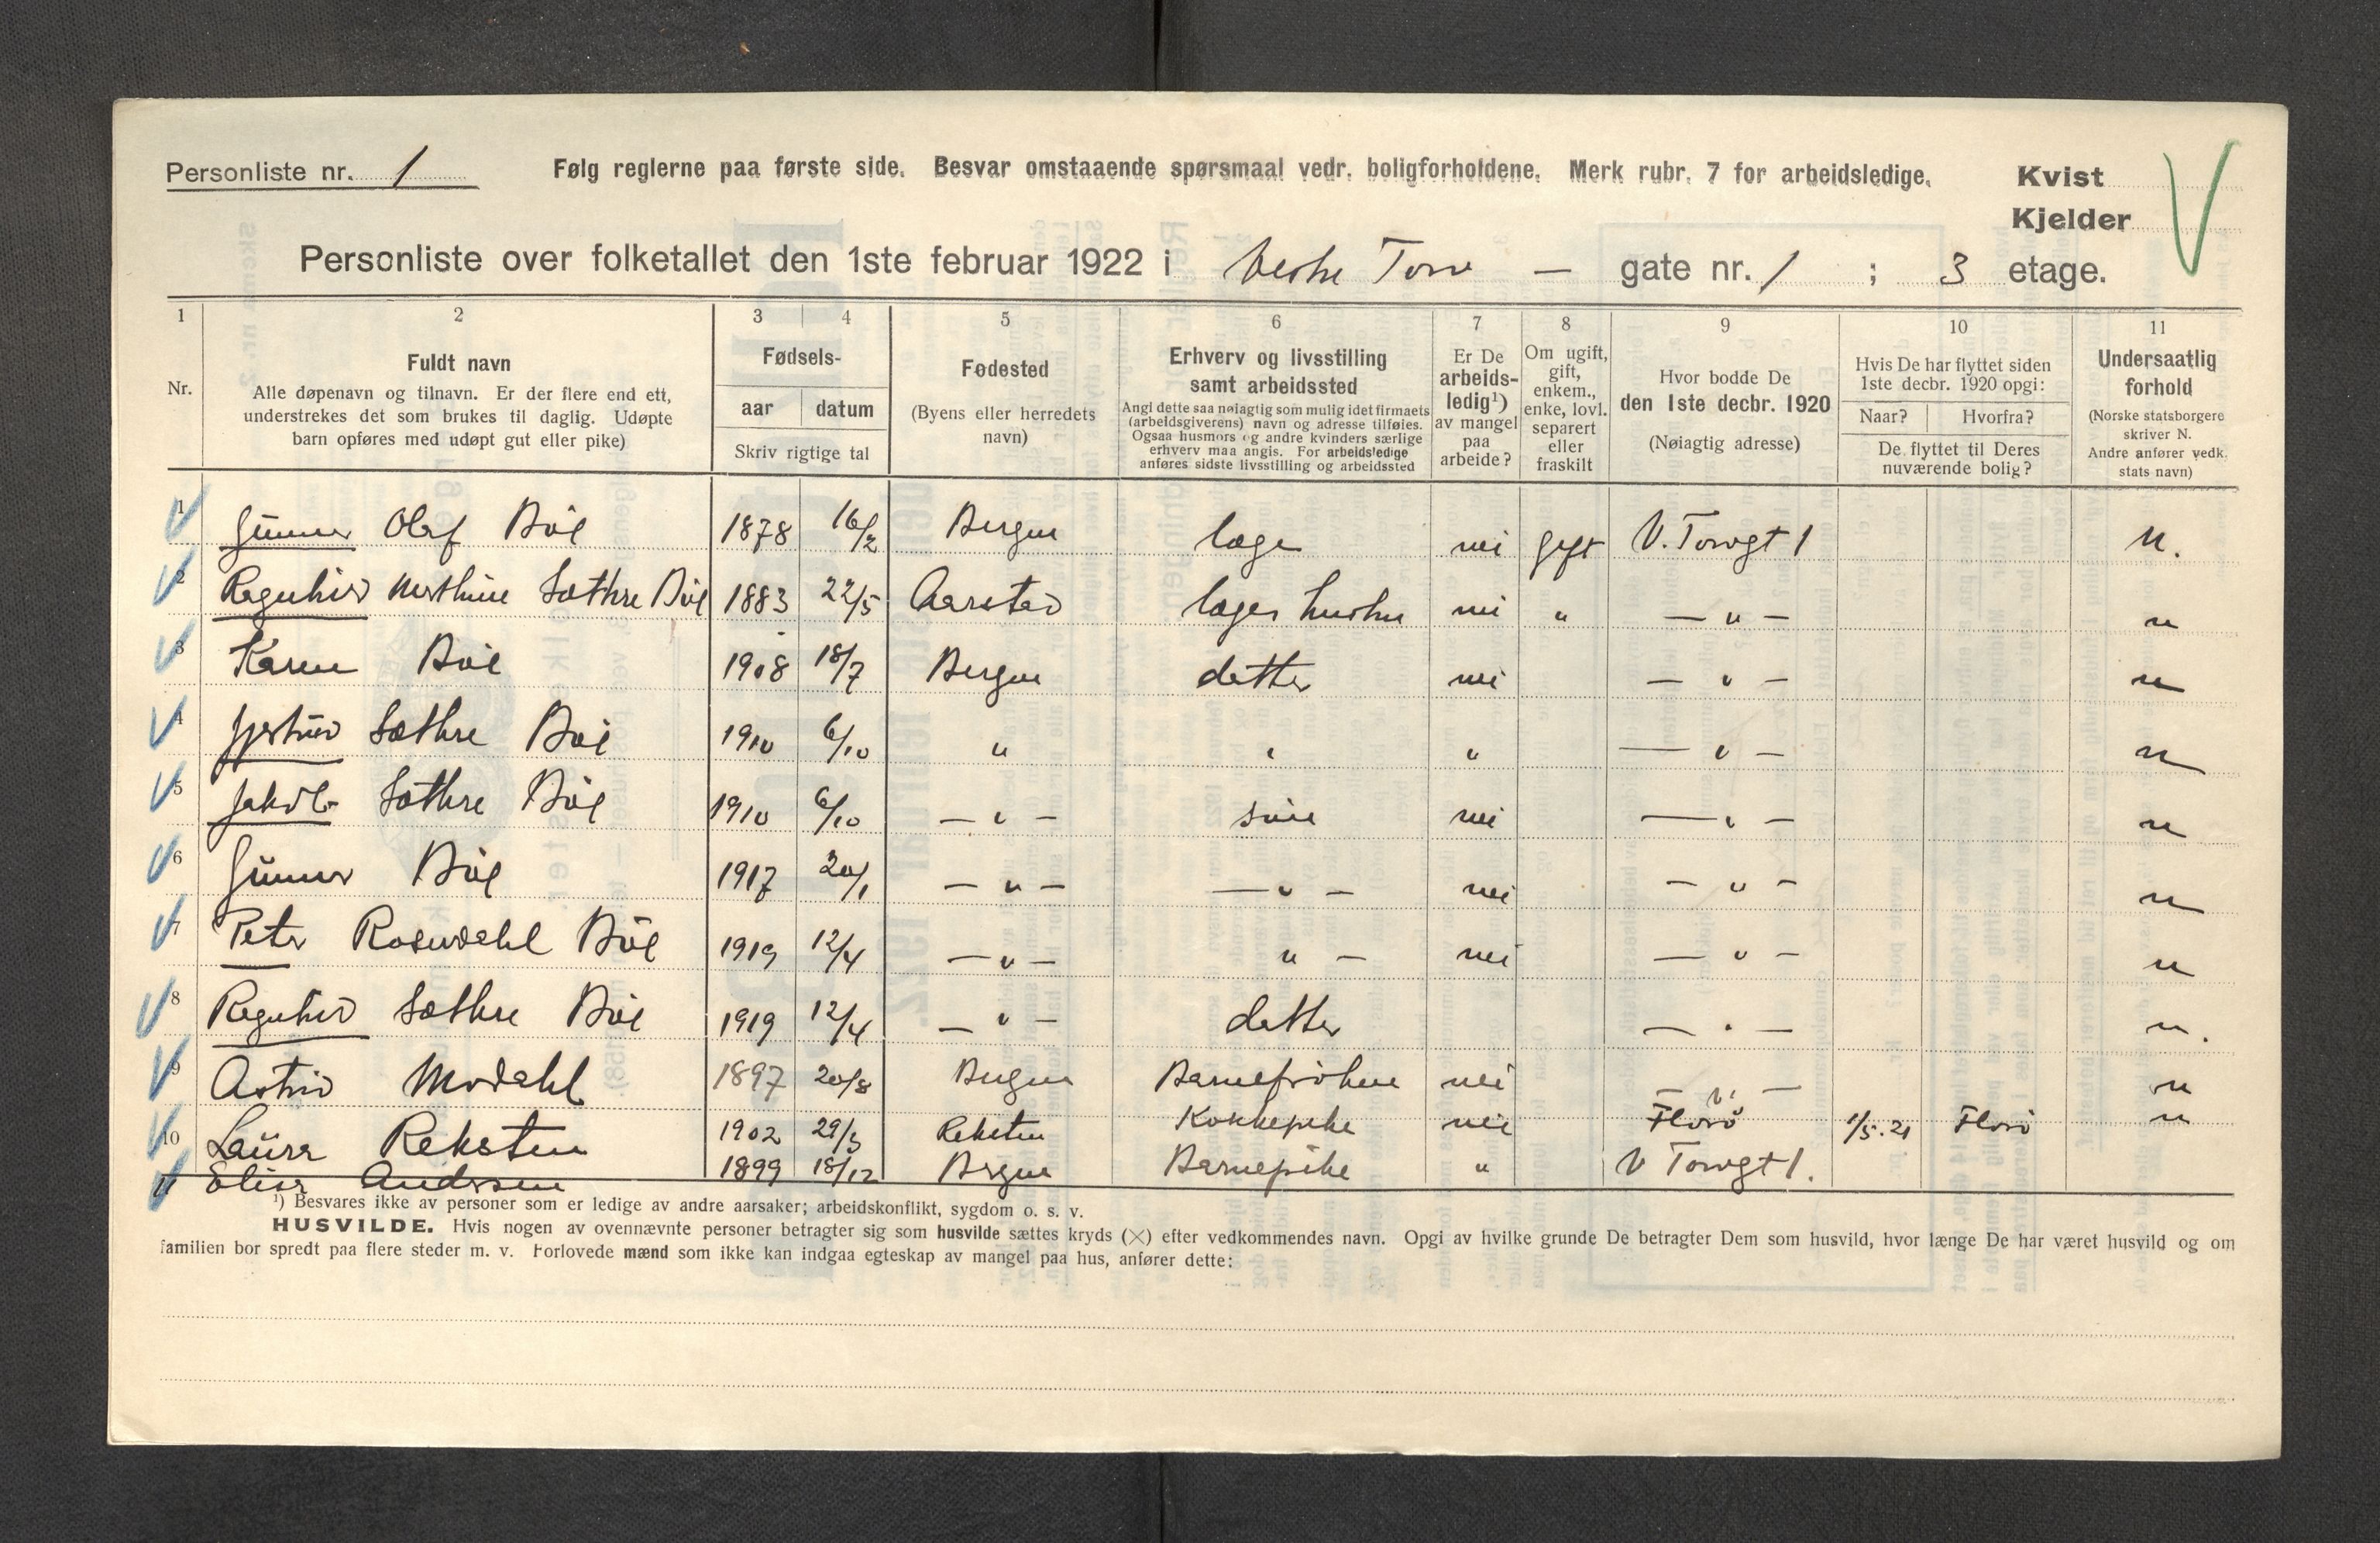 Personliste nr. 1 Følg reglerne paa første side. Besvar omstaaende spørsmaal vedr. boligforholdene. Merk rubr. 7 for arbeidsledige. Kvist
Kjelder
Personliste over folketallet den 1ste februar 1922 i Vestre Torv — gate nr. 1 ; 3 etage.
1 2 3 4 5 6 7 8 9 10 11
Nr.
Fuldt navn
Alle døpenavn og tilnavn. Er der flere end ett,
understrekes det som brukes til daglig. Udøpte
barn opføres med udøpt gut eller pike)
Fødsels-
aar datum
Skriv rigtige tal
Fødested
(Byens eller herredets
navn)
Erhverv og livsstilling
samt arbeidssted
Angi dette saa nøiagtig som mulig idet firmaets
(arbeidsgiverens) navn og adresse tilføies.
Ogsaa husmors og andre kvinders særlige
erhverv maa angis. For arbeidsledige
anføres sidste livsstilling og arbeidssted
Er De
arbeids-
ledig¹)
av mangel
paa
arbeide?
Om ugift,
gift,
enkem.,
enke, lovl.
separert
eller
fraskilt
Hvor bodde De
den 1ste decbr. 1920
(Nøiagtig adresse)
Hvis De har flyttet siden
1ste decbr. 1920 opgi:
Naar? Hvorfra?
De flyttet til Deres
nuværende bolig?
Undersaatlig
forhold
(Norske statsborgere
skriver N.
Andre anfører vedk.
stats navn)
1 Gunnar Olaf Bøe 1878 16/2 Bergen læge nei gift V. Torvgt 1 N.
2 Ragnhild Sæthre Bøe 1883 22/5 Aarstad læges hustru nei " — " — n
3 Karen Bøe 1908 18/7 Bergen datter nei — " — n
4 Gjertrud Sæthre Bøe 1910 6/10 " " " — " — n
5 Jakob Sæthre Bøe 1910 6/10 — " — søn nei — " — n
6 Gunnar Bøe 1917 20/1 — " — — " — nei — " — n
7 Peter Rosendahl Bøe 1919 12/4 — " — " — nei — " — n
8 Ragnhild Sæthre Bøe 1919 12/4 — " — datter — " — n.
9 Astrid Modahl 1897 20/8 Bergen Barnefrøken nei — " — n
10 Laura Reksten 1902 29/3 Reksten Kokkepike nei Florø 1/5.21 Florø n
Elisa Andersen 1899 18/12 Bergen Barnepike " V Torvgt 1.
¹) Besvares ikke av personer som er ledige av andre aarsaker; arbeidskonflikt, sygdom o. s. v.
HUSVILDE. Hvis nogen av ovennævnte personer betragter sig som husvilde sættes kryds (×) efter vedkommendes navn. Opgi av hvilke grunde De betragter Dem som husvild, hvor længe De har været husvild og om
familien bor spredt paa flere steder m. v. Forlovede mænd som ikke kan indgaa egteskap av mangel paa hus, anfører dette: